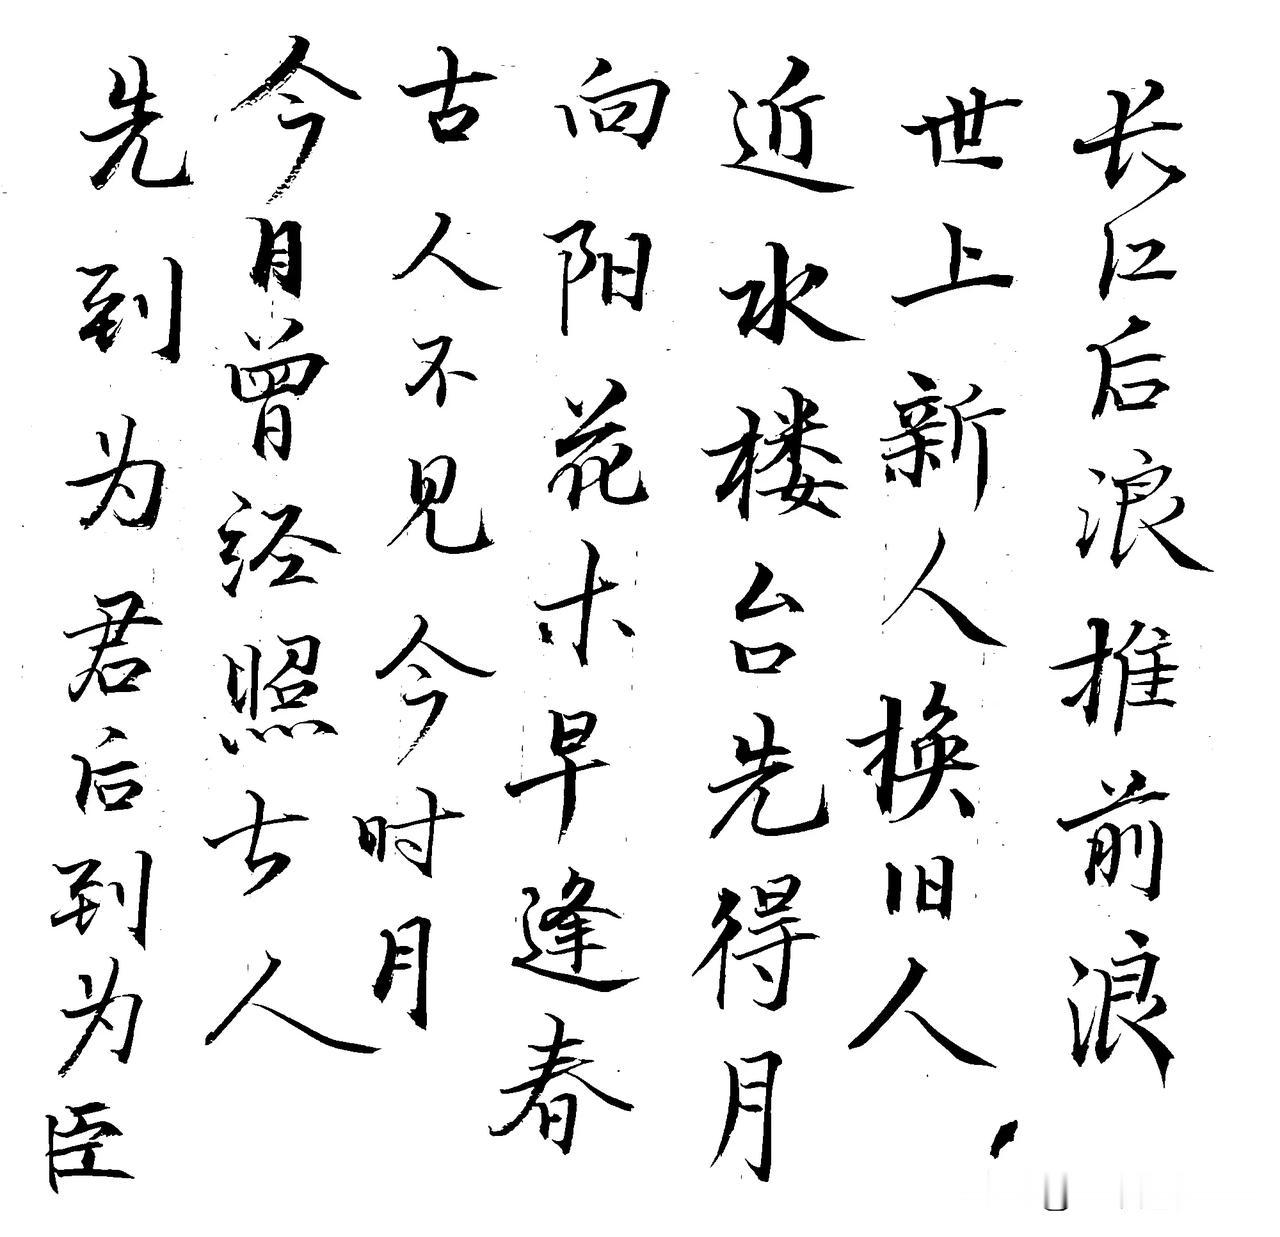 长江后浪推前浪
世上新人换旧人
近水楼台先得月
向阳花木早逢春
古人不见今时月
今月曾经照古人
先到为君后到为臣